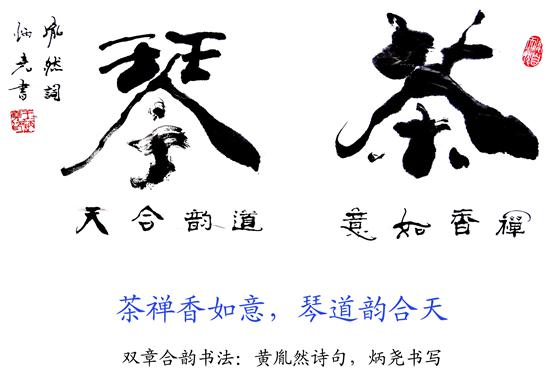 茶
禪香如意
琴
道韵合天
胤然詞
炳尧書
茶禅香如意，琴道韵合天
双章合韵书法：黄胤然诗句，炳尧书写